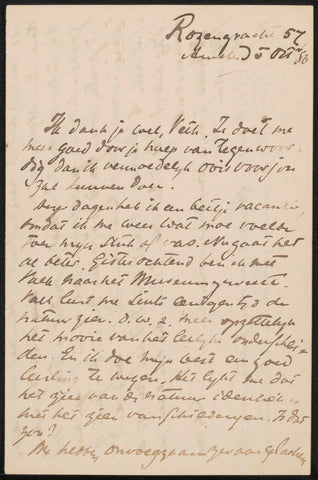 Rozengracht 57
Amsterd 5 Oct 86
Ik dank je wel, Veth. Je doet me
meer goed door je hulp van tegenwoor-
dig dan ik vermoedelijk ooit voor jou
zal kunnen doen.
Deze dagen heb ik een beetje vacantie,
omdat ik me weer wat moe voelde
toen mijn stuk af was. Nu gaat het
al beter. Gisterochtend ben ik met
Valk naar het Museum geweest.
Valk leert me sints eenigen tijd de
natuur zien. d.w.z. meer opzettelijk
het mooie van het leelijke onderschei-
den. En ik doe mijn best een goed
leerling te wezen. Het lijkt me dat
het zien van de natuur identiek is
met het zien van schilderijen. Is dat
zoo?
We hebben onvoegzaam gelachen